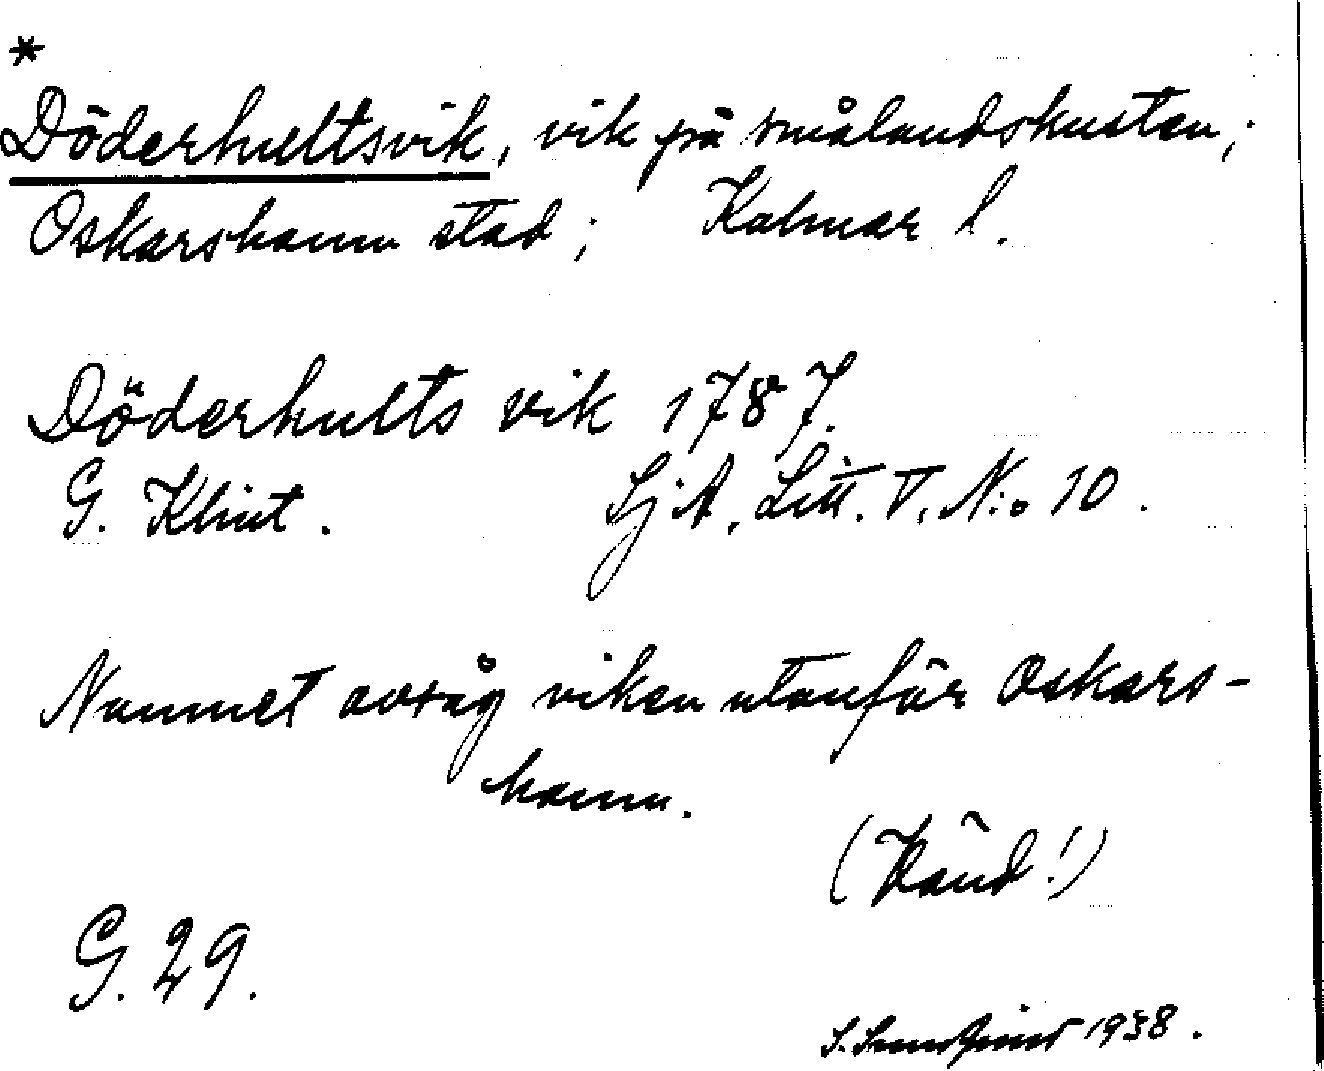 *
Döderhultsvik, vik på smålandskusten;
Oskarshamn stad; Kalmar l.
Döderhults vik 1787.
G. Klint. SjA, Litt. V. N:o 10.
Namnet avsåg viken utanför Oskars-
hamn.
(Känd!)
G. 29.
S. 1938.